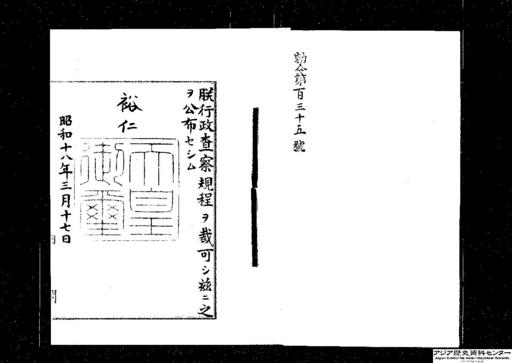 勅令第百三十五號
朕行政査察規程ヲ裁可シ茲ニ之
ヲ公布セシム
裕仁
天皇御璽
昭和十八年三月十七日
アジア歴史資料センター
Japan Center for Asian Historical Records